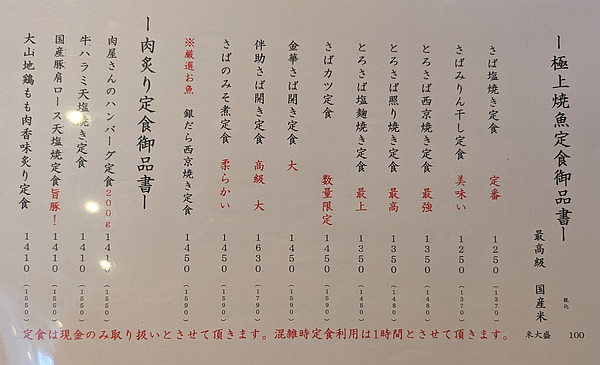 ー極上焼魚定食御品書ー
最高級 国産米
税込
米大盛 100
さば塩焼き定食 定番 1250 (1370)
さばみりん干し定食 美味い 1250 (1370)
とろさば西京焼き定食 最強 1350 (1480)
とろさば照り焼き定食 最高 1350 (1480)
とろさば塩麹焼き定食 最上 1350 (1480)
さばカツ定食 数量限定 1450 (1590)
金華さば開き定食 大 1450 (1590)
伴助さば開き定食 高級 大 1630 (1790)
さばのみそ煮定食 柔らかい 1450 (1590)
※厳選お魚 銀だら西京焼き定食 1450 (1590)
ー肉炙り定食御品書ー
肉屋さんのハンバーグ定食200g 1410 (1550)
牛ハラミ天塩焼き定食 1410 (1550)
国産豚肩ロース天塩焼定食旨豚! 1410 (1550)
大山地鶏もも肉香味炙り定食 1410 (1550)
定食は現金のみ取り扱いとさせて頂きます。混雑時定食利用は1時間とさせて頂きます。